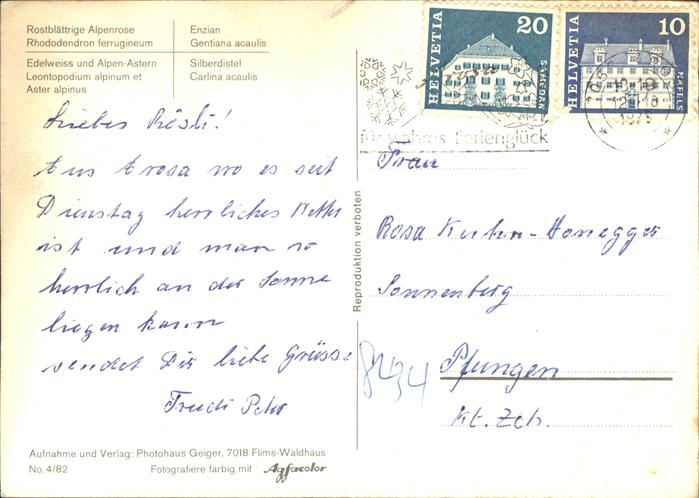 Rostblättrige Alpenrose
Rhododendron ferrugineum
Enzian
Gentiana acaulis
Edelweiss und Alpen-Astern
Leontopodium alpinum et
Aster alpinus
Silberdistel
Carlina acaulis
HELVETIA 20 SAMEDAN
HELVETIA 10 NÄFELS
für wahres Ferienglück
Liebes Rösli!
Aus Arosa wo es seit
Dienstag herrliches Wetter
ist und man so
herrlich an der Sonne
liegen kann
sendet Dir liebe Grüsse
Trudi Peter
Reproduktion verboten
Frau
Rosa Kuhn-Honegger
Sonnenberg
8434 Pfungen
Kt. Zch.
Aufnahme und Verlag: Photohaus Geiger, 7018 Flims-Waldhaus
No. 4/82 Fotografiere farbig mit Agfacolor